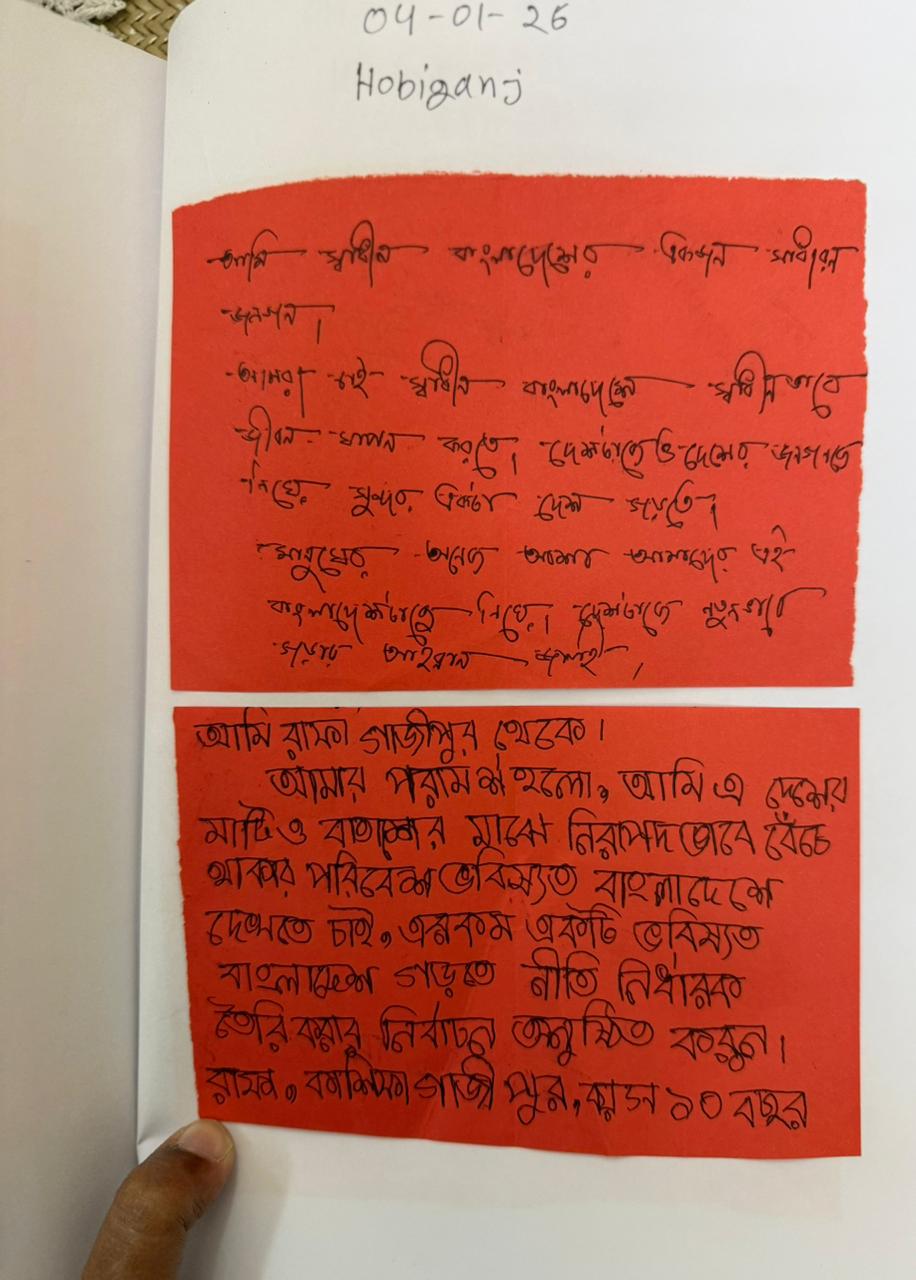 04-01-26
Hobiganj
আমি স্বাধীন বাংলাদেশের একজন সাধারন
জনগন।
আমরা চাই স্বাধীন বাংলাদেশে স্বাধীনভাবে
জীবন যাপন করতে। দেশটাকে ও দেশের জনগনকে
নিয়ে সুন্দর একটা দেশ গড়তে।
মানুষের অনেক আশা আমাদের এই
বাংলাদেশটাকে নিয়ে। দেশটাকে নতুনভাবে
গড়ার আহবান জানাই।
আমি রাফা গাজীপুর থেকে।
আমার পরামর্শ হলো, আমি এ দেশের
মাটি ও বাতাশের মাঝে নিরাপদ ভাবে বেঁচে
থাকার পরিবেশ ভবিষ্যত বাংলাদেশে
দেখতে চাই, এরকম একটি ভবিষ্যত
বাংলাদেশ গড়তে নীতি নির্ধারক
তৈরি করার নির্বাচন অনুষ্ঠিত করুন।
রাফা, গাজীপুর, বয়স ১০ বছর